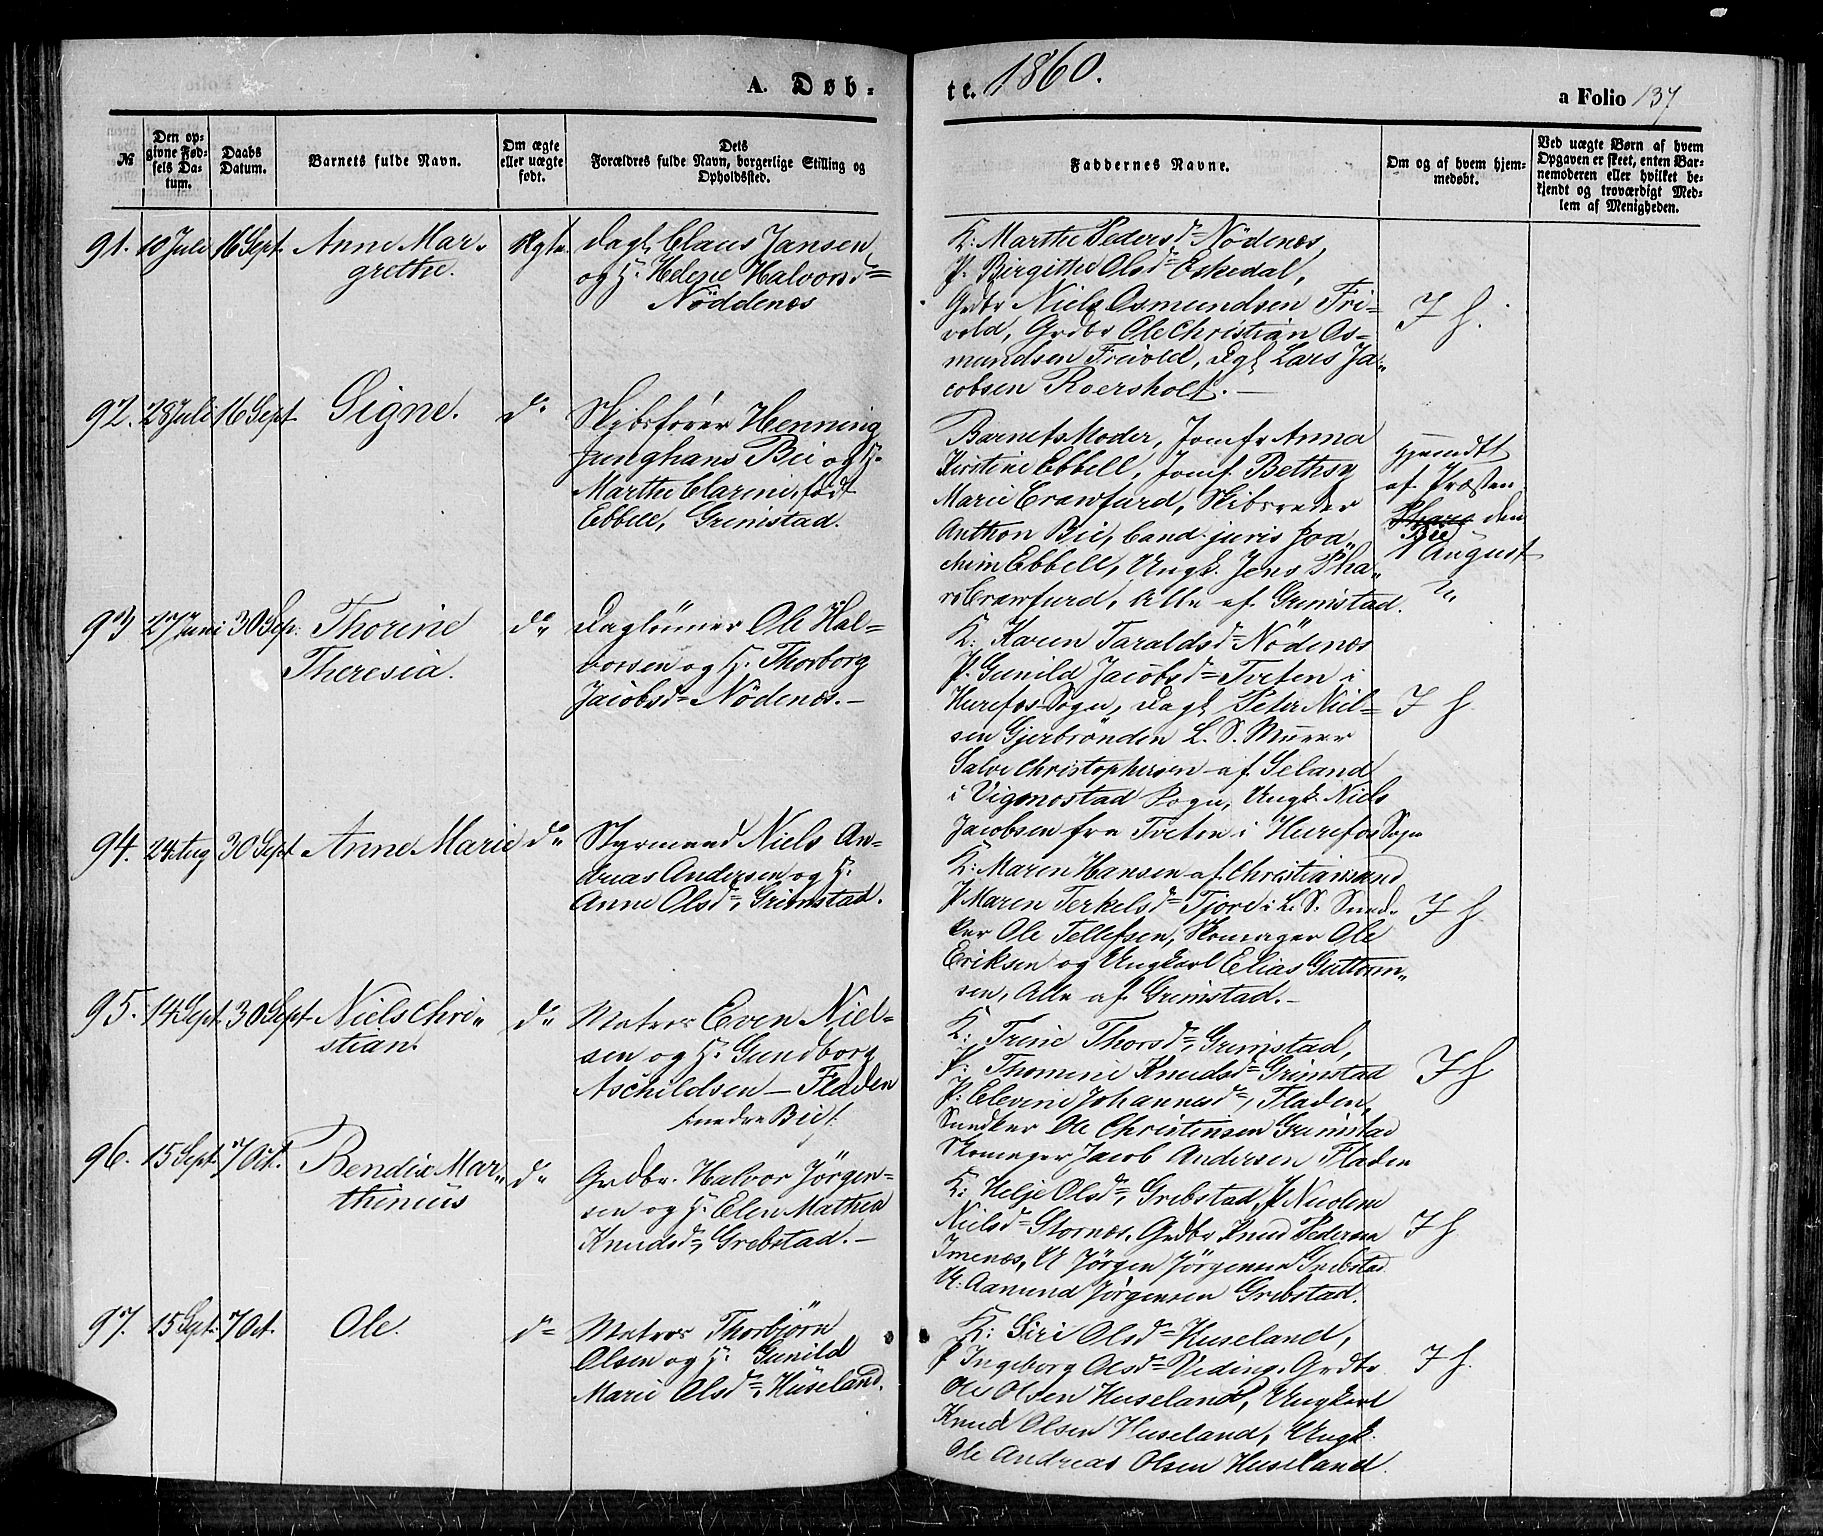 A. Døb-
te. 1860.
a Folio 137
№
Den op-
givne Fød-
sels Da-
tum.
Daabs
Datum.
Barnets fulde Navn.
Om ægte
eller uægte
født.
Dets
Forældres fulde Navn, borgerlige Stilling og
Opholdssted.
Faddernes Navne.
Om og af hvem hjem-
medøbt.
Ved uægte Børn af hvem
Opgaven er skeet, enten Bar-
nemoderen eller hvilket be-
kjendt og troværdigt Med-
lem af Menigheden.
91. 10 Juli 16 Sept. Anne Mar-
grethe.
Ægte.
Dagl. Claus Jansen
og H. Helene Halvorsd=
Nöddenæs
K: Marthe Pedersd= Nödenæs,
P. Birgithe Olsd= Eskedal,
Grdbr Niels Osmundsen Fri-
vold, Grdbr Ole Christian Os-
mundsen Frivold, Dgl Lars Ja-
cobsen Roersholt. —
J h.
92. 28 Juli 16 Sept Signe.
do
Skibsfører Henning
Junghans Bie og H.
Marthe Clarine, fød
Ebbell, Grimstad.
Barnets Moder, Jomfr Anna
Kirstine Ebbell, Jomf. Bethsy
Marie Crawfurd, Skibsreder
Anthon Bie, Cand. juris Joa-
chim Ebbell, Ungk. Jens Pha-
ro Crawfurd, Alle af Grimstad.
hjemdt
af Præsten
Bie den
1 August
93 27 Juni 30 Sep. Thorine
Theresia.
do
Daglönner Ole Hal-
vorsen og H. Thorborg
Jacobsd= Nödenæs. —
K: Karen Taraldsd= Nödenæs
P. Gunild Jacobsd= Tveten i
Herefos Sogn, Dagl Peter Niel-
sen Gjerbrönden L. S. Murer
Salve Christophersen af Seland
i Vigmostad Sogn, Ungk. Niels
Jacobsen fra Tveten i Herefos Sogn
J h
94. 24 Aug 30 Sept Anne Marie
do
Styrmand Niels An-
dreas Andersen og H.
Anne Olsd=, Grimstad.
K: Maren Hansen af Christianssand
P Maren Terkelsd= Fjore i L. S. Sned-
ker Ole Tellefsen, Skomager Ole
Eriksen og Ungkarl Elias Guttorm-
sen, Alle af Grimstad. —
J h
95. 14 Sept. 30 Sept Niels Chri-
stian.
do
Matros Even Niel-
sen og H. Gundborg
Aschildsen — Fladen
K: Trine Thorsd=, Grimstad,
P. Thomine Knudsd= Grimstad
P: Elevine Johannesd=, Fladen,
Snedker Ole Christensen Grimstad
Skomager Jacob Andersen Fladen
J h
96. 15 Sept. 7 Oct. Bendix Mar-
thinius
do
Grdbr. Halvor Jörgen-
sen og H. Elen Mathea
Knudsd=, Grebstad. —
K: Helje Olsd=, Grebstad, P Nicoline
Nielsd= Stornæs, Grdbr Knud Pedersen
Imenæs, U Jörgen Jörgensen Grebstad
U: Aamund Jörgensen Grebstad.
J h
97. 15 Sept. 7 Oct. Ole.
do
Matros Thorbjörn
Olsen og H. Gunild
Marie Olsd=, Huseland.
K: Siri Olsd= Huseland,
P Ingeborg Olsd= Veding, Grdbr
Ole Olsen Huseland, Ungkarl
Knud Olsen Huseland, Ungk.
Ole Andreas Olsen Huseland.
J h.